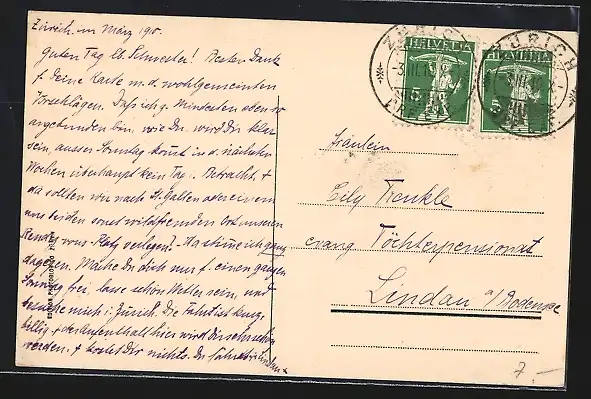 Zürich. im März 1910.
Guten Tag lb. Schwester! Besten Dank
f. Deine Karte m. d. wohlgemeinten
Vorschlägen. Dass ich z. Mindesten ebenso
angebunden bin, wie Du, wird Dir klar
sein, ausser Sonntag kommt in d. nächsten
Wochen überhaupt kein Tag i. Betracht, &
da sollten wir nach St. Gallen oder einem
uns beiden sonst wildfremden Ort unseren
Rendez-vous-Platz verlegen? Da stimme ich ganz
dagegen. Mache Du dich nur f. einen ganzen
Sonntag frei, lasse schön Wetter sein, und
besuche mich i. Zürich. Die Fahrt ist kurz,
billig, & der Aufenthalt hier wird Dir schon
werden. & kostet Dir nichts. Du fährst in Lindau
HELVETIA
5
HELVETIA
5
ZÜRICH
ZÜRICH
Fräulein
Cily Trenkle
evang Töchterpensionat
Lindau a/Bodensee
7.-